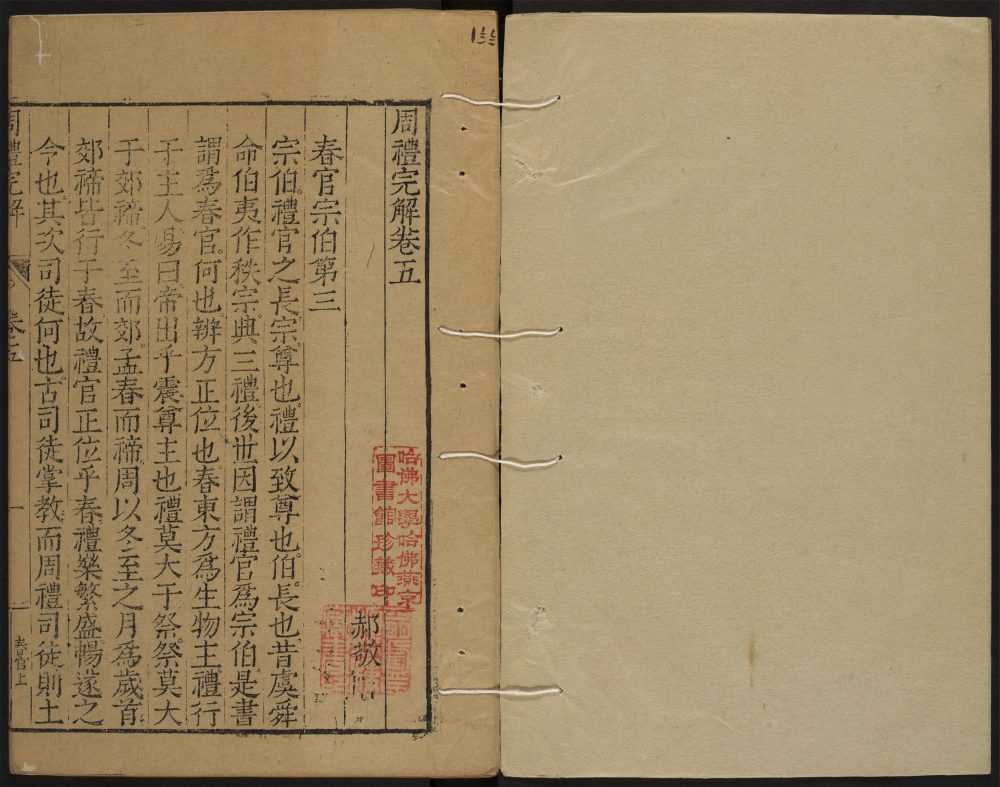 周禮完解卷五
郝敬
春官宗伯第三
宗伯禮官之長宗尊也禮以致尊也伯長也昔虞舜
命伯夷作秩宗典三禮後世因謂禮官爲宗伯是書
謂爲春官何也辨方正位也春東方爲生物主禮行
于主人易曰帝出乎震尊主也禮莫大于祭祭莫大
于郊禘冬至而郊孟春而禘周以冬至之月爲歲首
郊禘皆行于春故禮官正位乎春禮樂繁盛暢遂之
今也其次司徒何也古司徒掌教而周禮司徒則土
周禮完解
卷五
一
春官上
哈佛大學哈佛燕京
圖書館珍藏印